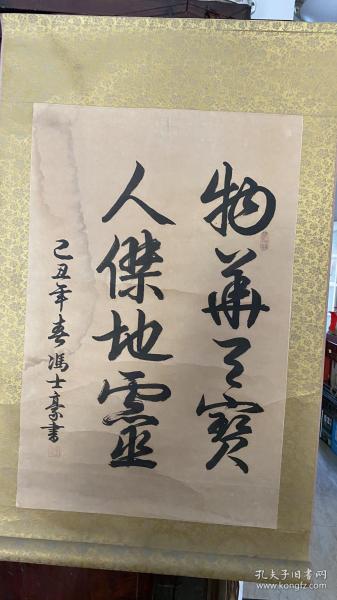 物華天寶
人傑地靈
己丑年春馮士豪書
孔夫子旧书网
www.kongfz.com